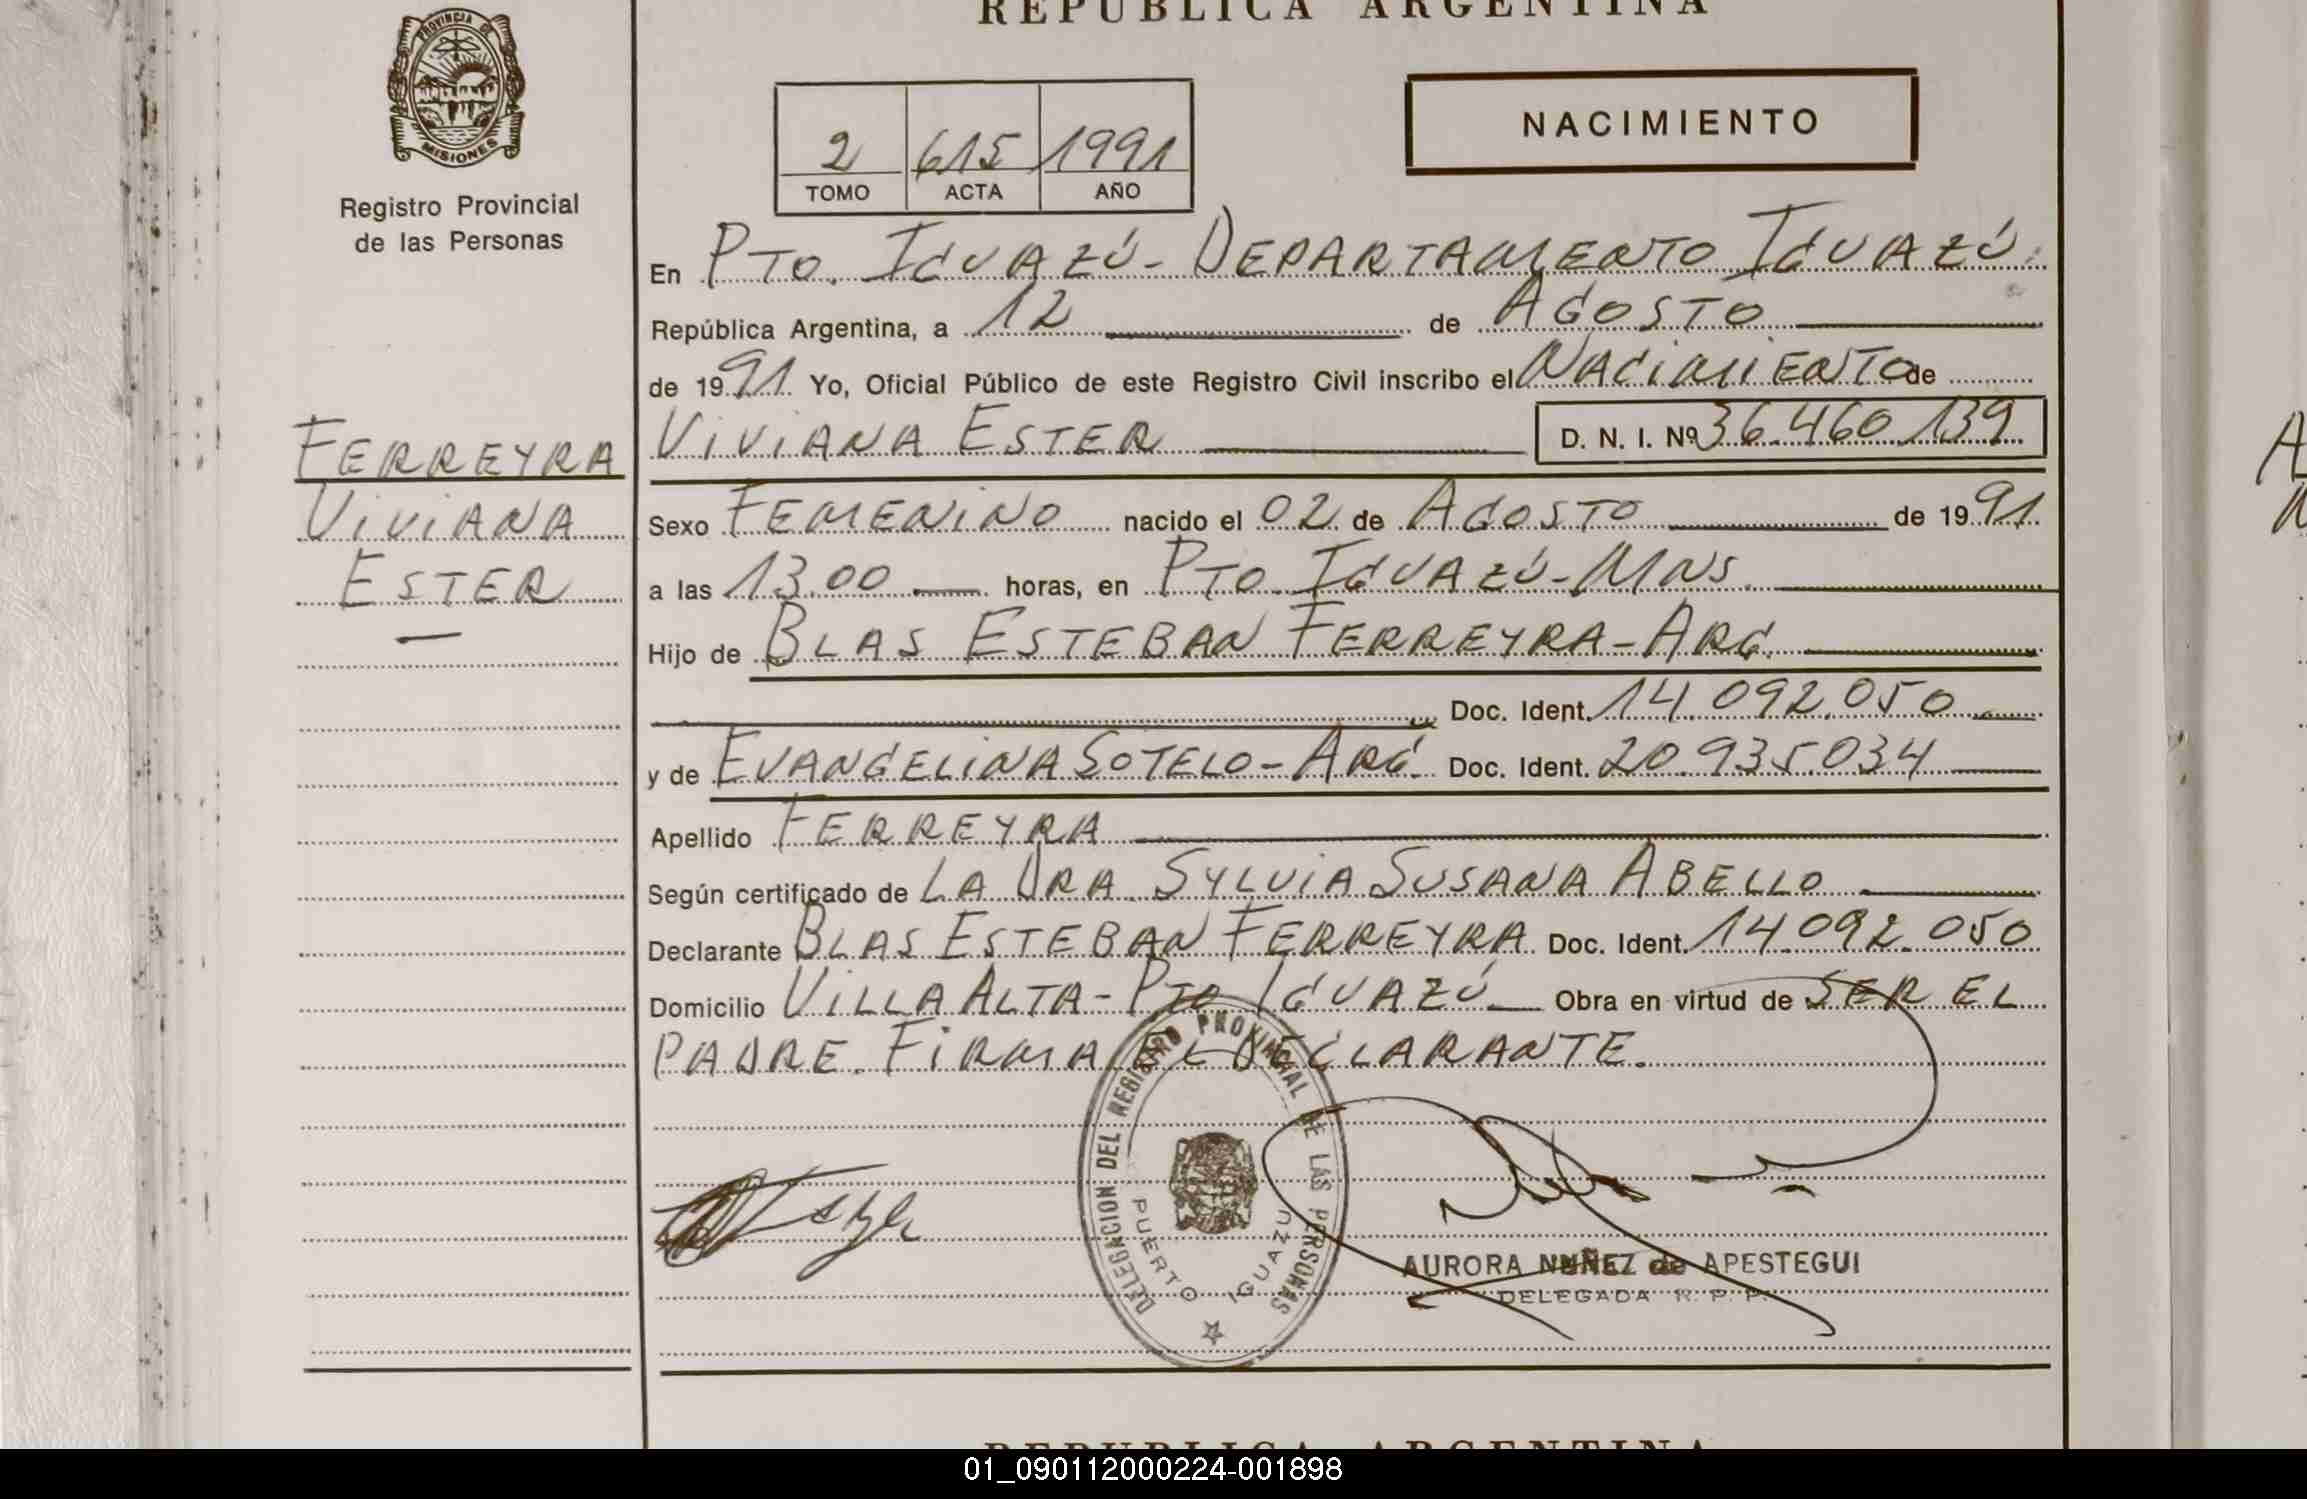 REPUBLICA ARGENTINA
PROVINCIA DE
MISIONES
Registro Provincial
de las Personas
2 615 1991
TOMO ACTA AÑO
NACIMIENTO
En PTO. IGUAZÚ - DEPARTAMENTO IGUAZÚ.
República Argentina, a 12 de AGOSTO
de 1991. Yo, Oficial Público de este Registro Civil inscribo el NACIMIENTO de
VIVIANA ESTER D. N. I. Nº 36.460.139
FERREYRA
VIVIANA
ESTER
Sexo FEMENINO nacido el 02 de AGOSTO de 1991.
a las 13.00 horas, en PTO. IGUAZÚ - MNS.
Hijo de BLAS ESTEBAN FERREYRA - ARG.
Doc. Ident. 14.092.050
y de EVANGELINA SOTELO - ARG. Doc. Ident. 20.935.034
Apellido FERREYRA
Según certificado de LA DRA. SYLVIA SUSANA ABELLO
Declarante BLAS ESTEBAN FERREYRA Doc. Ident. 14.092.050
Domicilio VILLA ALTA - PTO IGUAZÚ Obra en virtud de SER EL
PADRE. FIRMA EL DECLARANTE.
DELEGACION DEL REGISTRO PROVINCIAL DE LAS PERSONAS
PUERTO IGUAZU
AURORA NUÑEZ de APESTEGUI
DELEGADA R. P. P.
REPUBLICA ARGENTINA
01_090112000224-001898